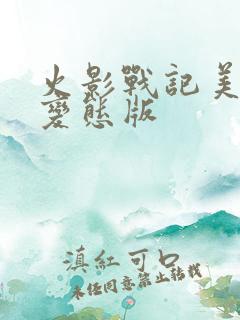 火影戰記美
變態版
滇紅可口
未經同意禁止轉載